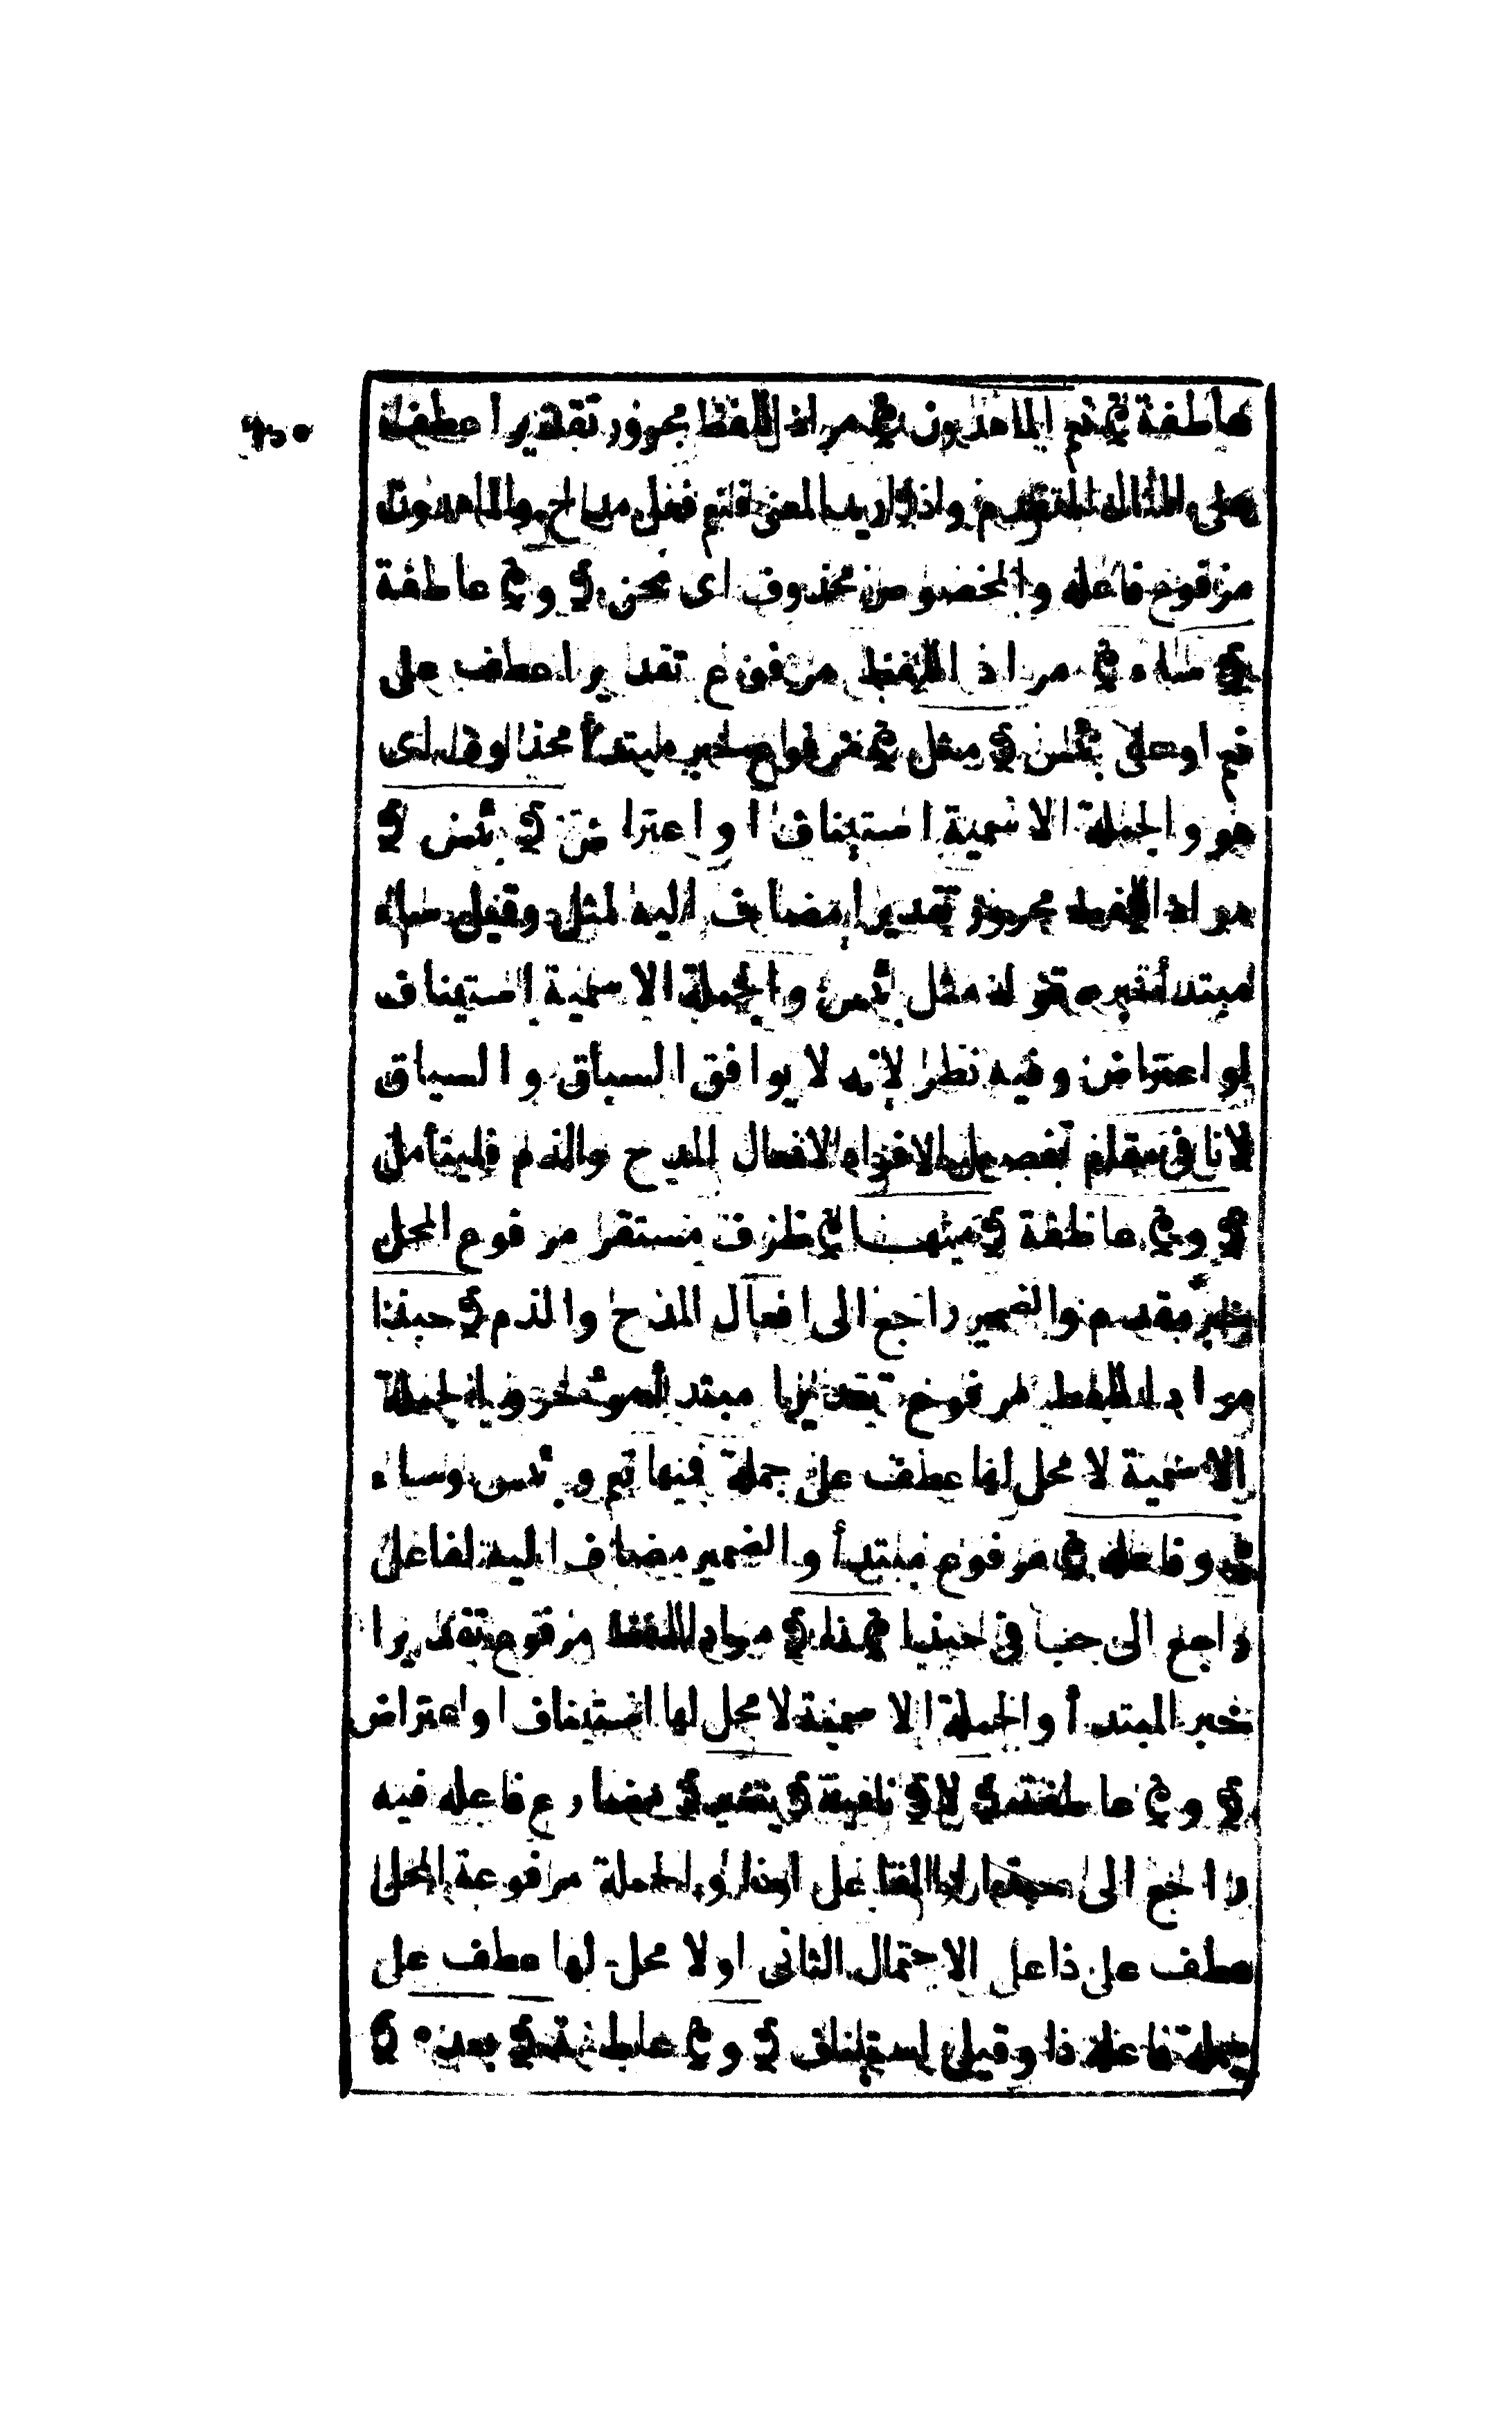 ٩٥٠
عاطفة فنعم الماهدون مراد اللفظ مجرور تقديرا عطف
على المثال المتقدم واذا اريد المعنى فنعم فعل مدح والماهدون
مرفوع فاعله والمخصوص محذوف اى نحن و عاطفة
ساء مراد اللفظ مرفوع تقديرا عطف على
نعم او على بئس مثل مرفوع خبر مبتدأ محذوف اى
هو والجملة الاسمية استيناف او اعتراض بئس
مراد اللفظ مجرور تقديرا مضاف اليه لمثل وقيل ساء
مبتدأ خبره قوله مثل بئس والجملة الاسمية استيناف
او اعتراض وفيه نظر لانه لا يوافق السباق والسياق
لانا فى مقام تفصيل الافراد لافعال المدح والذم فليتأمل
و عاطفة منها ظرف مستقر مرفوع المحل
خبر مقدم والضمير راجع الى افعال المدح والذم حبذا
مراد اللفظ مرفوع تقديرا مبتدأ مؤخر والجملة
الاسمية لا محل لها عطف على جملة فمنها نعم و بئس وساء
وفاعله مرفوع مبتدأ والضمير مضاف اليه لفاعل
راجع الى حب فى حبذا ذا مراد اللفظ مرفوع تقديرا
خبر المبتدأ والجملة الاسمية لا محل لها استيناف او اعتراض
و عاطفة لا نافية يتغير مضارع فاعله فيه
راجع الى الفاعل او ذا والجملة مرفوعة المحل
عطف على ذا على الاحتمال الثانى او لا محل لها عطف على
جملة فاعله ذا وقيل استيناف و عاطفة بعده